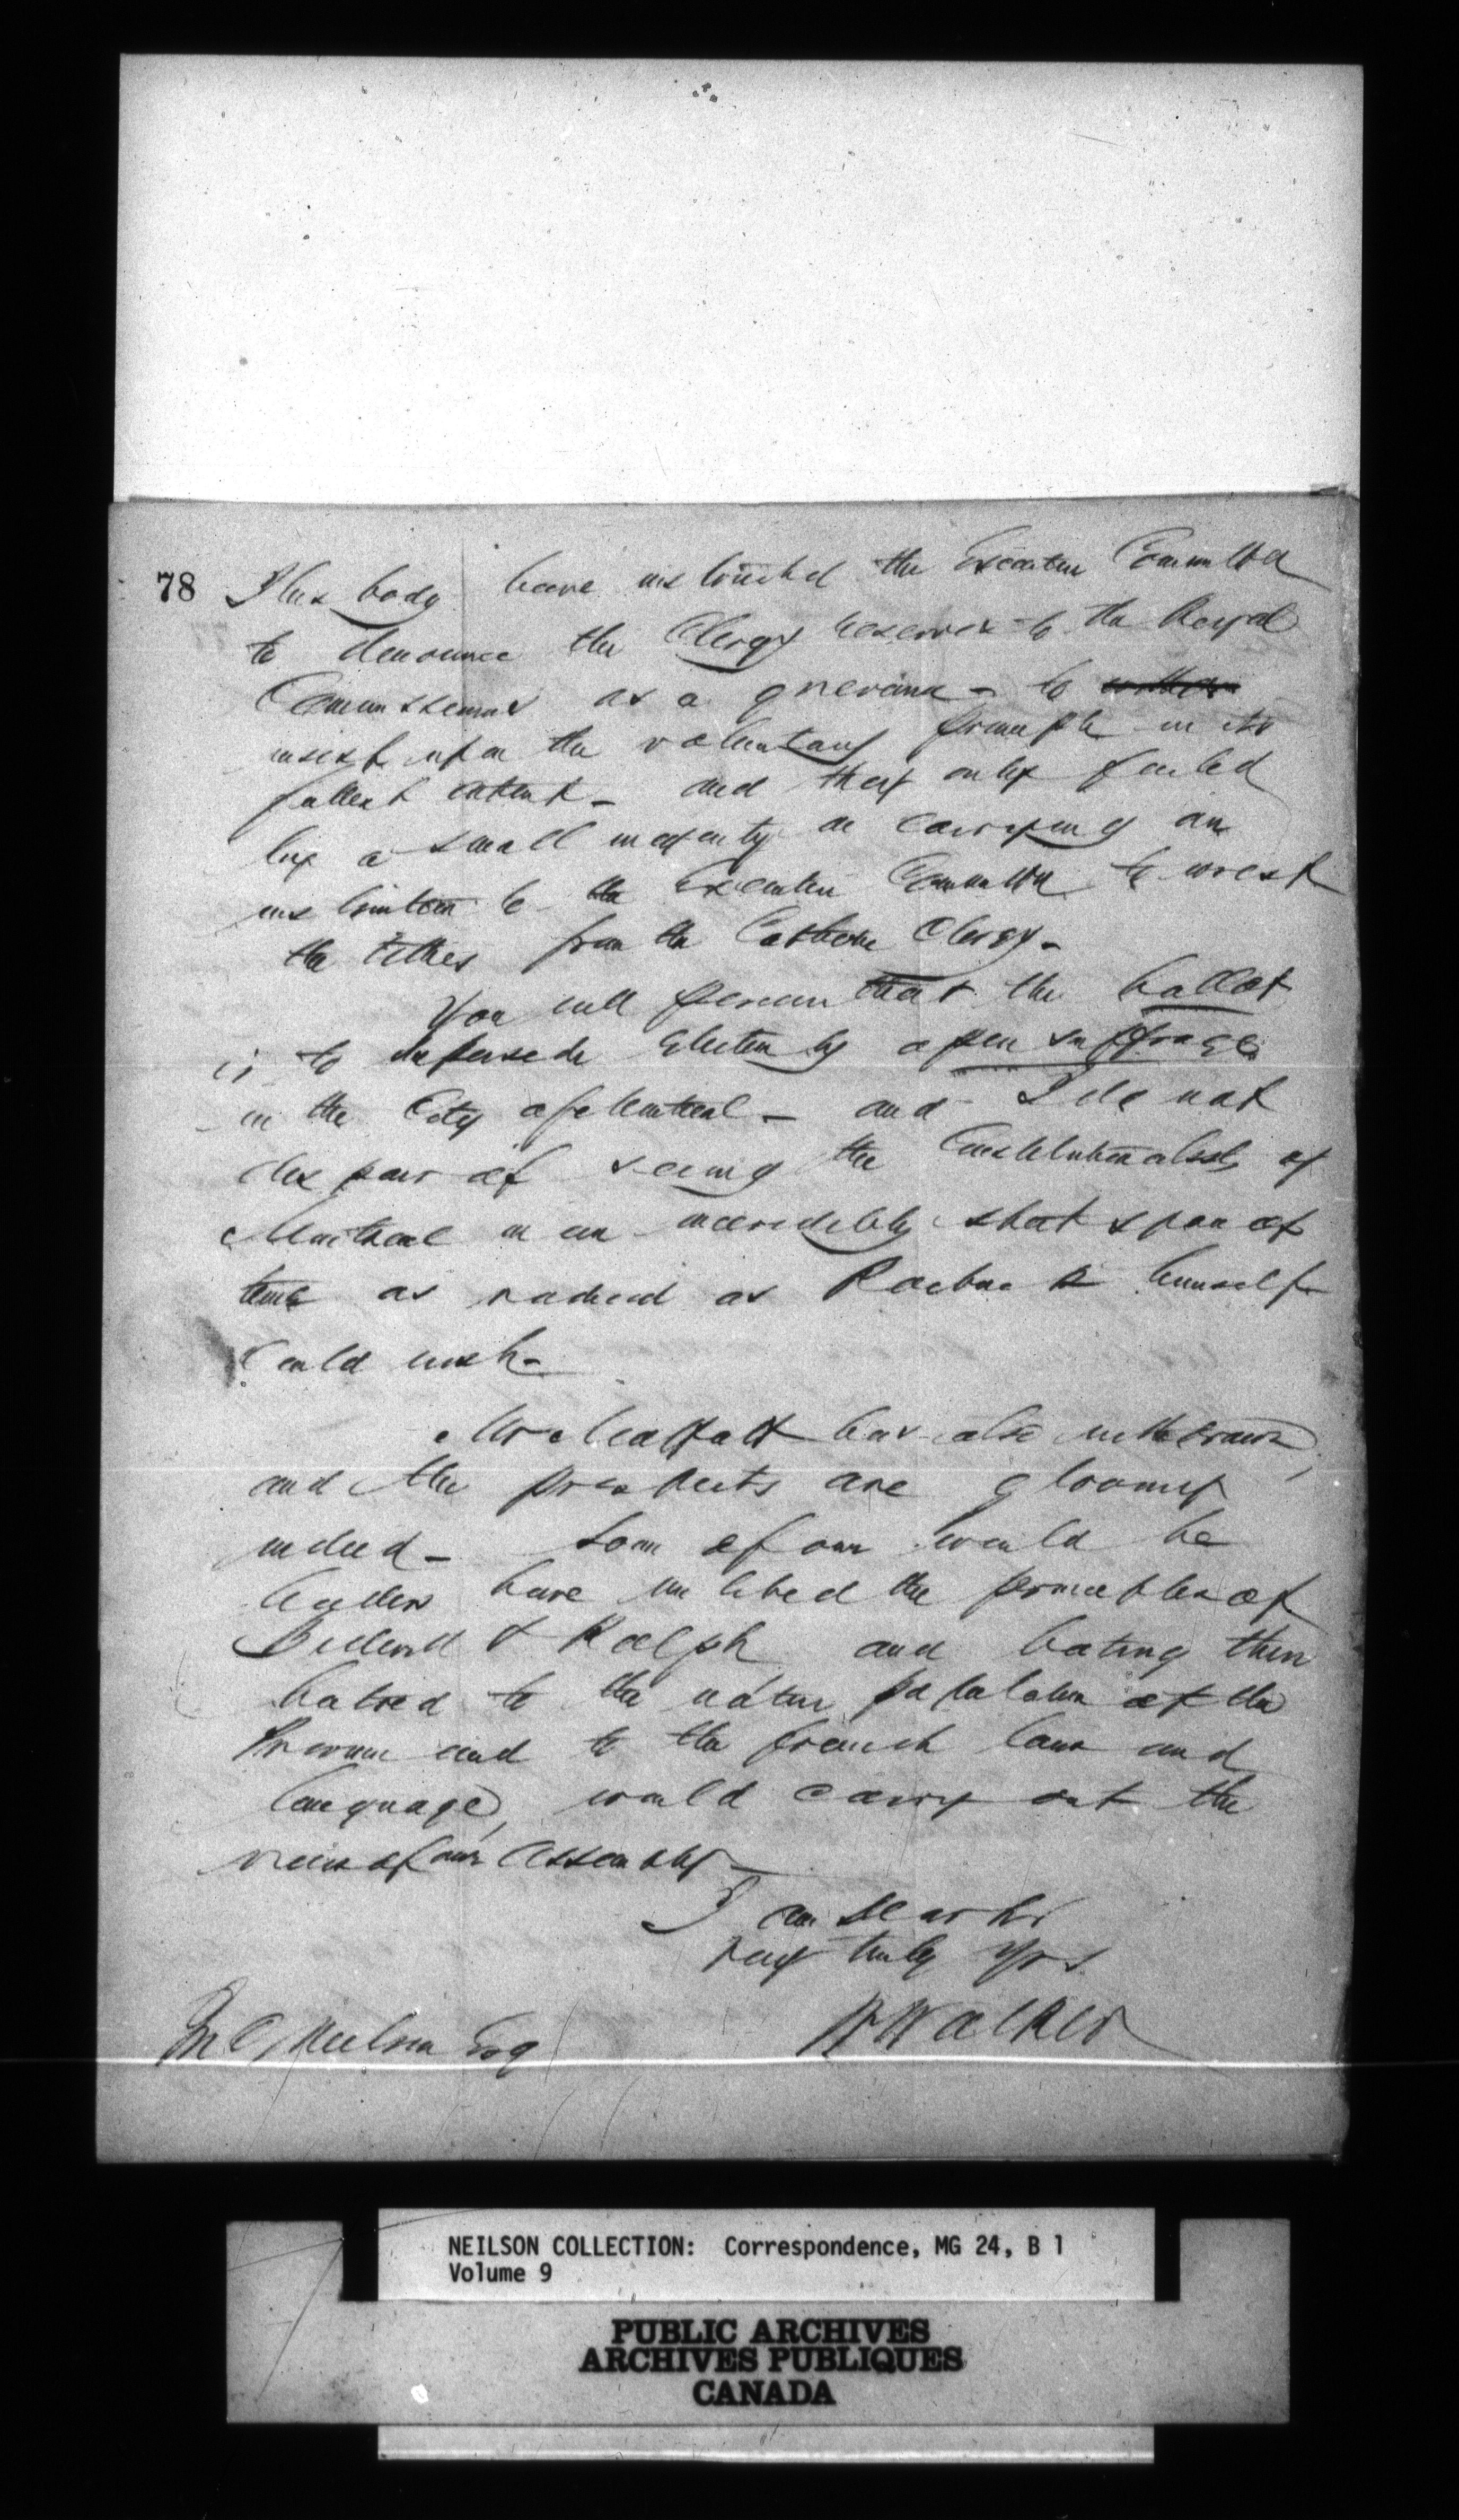 78
This body have instructed the Executive Committee
to denounce the Clergy reserves to the Royal
Commissioners as a grievance - to
insist upon the voluntary principle in its
fullest extent - and they only failed
by a small majority in carrying an
instruction to the Executive Committee to wrest
the tithes from the Catholic Clergy -
You will perceive that the ballot
is to supersede Election by open suffrage
in the City of Montreal - and I do not
despair of seeing the Constitutionalists of
Montreal in an incredibly short span of
time as radical as Roebuck himself
could wish -
Mr Moffatt has also withdrawn,
and the prospects are gloomy
indeed - Some of our would be
leaders have imbibed the principles of
Bidwell & Rolph and bating their
hatred to the native population of the
Province and to the french laws and
language, would carry out the
views of our Assembly -
I am Dear Sir
very truly yrs
W Walker
Jno Neilson Esq
NEILSON COLLECTION: Correspondence, MG 24, B 1
Volume 9
PUBLIC ARCHIVES
ARCHIVES PUBLIQUES
CANADA